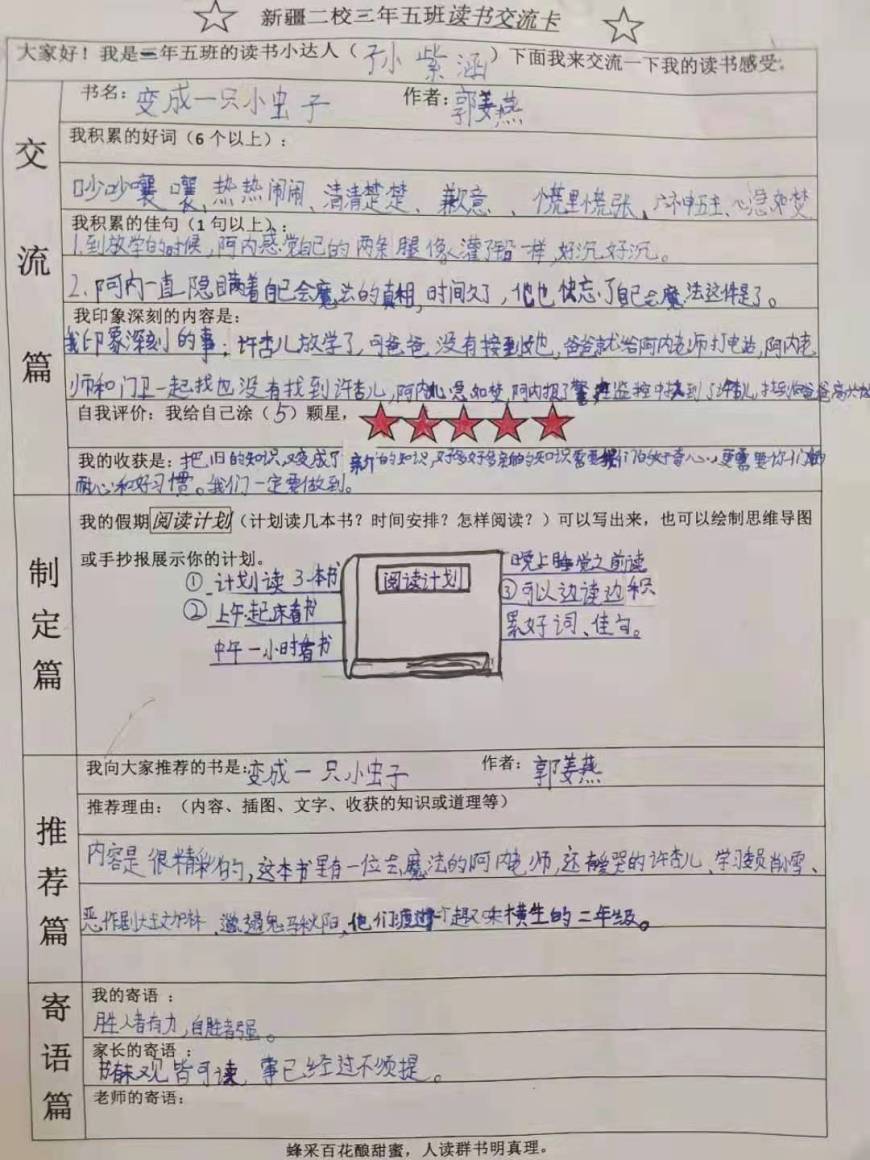 新疆二校三年五班读书交流卡
大家好！我是三年五班的读书小达人（孙紫涵）下面我来交流一下我的读书感受。
交流篇
书名：变成一只小虫子 作者：郭姜燕
我积累的好词（6个以上）：
吵吵嚷嚷、热热闹闹、清清楚楚、歉意、慌里慌张、六神无主、心急如焚
我积累的佳句（1句以上）：
1.到放学的时候，阿内感觉自己的两条腿像灌了铅一样，好沉好沉。
2.阿内一直隐瞒着自己会魔法的真相，时间久了，他也快忘了自己会魔法这件是了。
我印象深刻的内容是：
我印象深刻的事：许杏儿放学了，可爸爸没有接到她，爸爸就给阿内老师打电话，阿内老
师和门卫一起找也没有找到许杏儿，阿内心急如焚，阿内报了警，在监控中找到了许杏儿，
自我评价：我给自己涂（5）颗星，
我的收获是：把旧的知识，变成了新的知识，好多好多新的知识需要我们的好奇心，更需要你们的
耐心和好习惯。我们一定要做到。
制定篇
我的假期阅读计划（计划读几本书？时间安排？怎样阅读？）可以写出来，也可以绘制思维导图
或手抄报展示你的计划。
阅读计划
①计划读3本书
②上午起床看书
中午一小时看书
晚上睡觉之前读
③可以边读边积
累好词、佳句。
推荐篇
我向大家推荐的书是：变成一只小虫子 作者：郭姜燕
推荐理由：（内容、插图、文字、收获的知识或道理等）
内容是很精彩的，这本书里有一位会魔法的阿内老师，还有爱哭的许杏儿、学习委员肖雪、
恶作剧大王、邋遢鬼马秋阳，他们度过一个趣味横生的二年级。
寄语篇
我的寄语：
胜人者有力，自胜者强。
家长的寄语：
书有未观皆可读，事已经过不须提。
老师的寄语：
蜂采百花酿甜蜜，人读群书明真理。